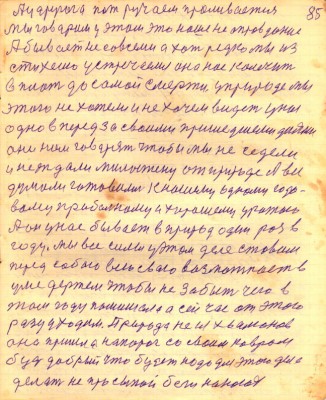 85
А и друга пот ручаем проливается
Мы говорим у этом это наше не оправдание
А бывает не совсем а хот редко мы из
стихею устречаем она нас калечит
в плот до самой смерти у природе мы
этого не хотели и не хочем видет у нас
одно в перед за своими пришедшими днями
они нам говорят чтобы мы не седели
и не ждали милостину от природе А мы
думали готовили к нашему одному году
вому прибалному и хорошему урожаю
А он у нас бывает в природ один роз в
году, мы все силы у этом деле ставим
перед собою всю свою возможность в
уме держем чтобы не забыт чего в
этом году помишало а сей час от этого
разу уходит. Природа не и хваталась
она пришла на порог со своим ковром
буд добрый что будет подо дм этого дела
делать не просыпой бего накосах